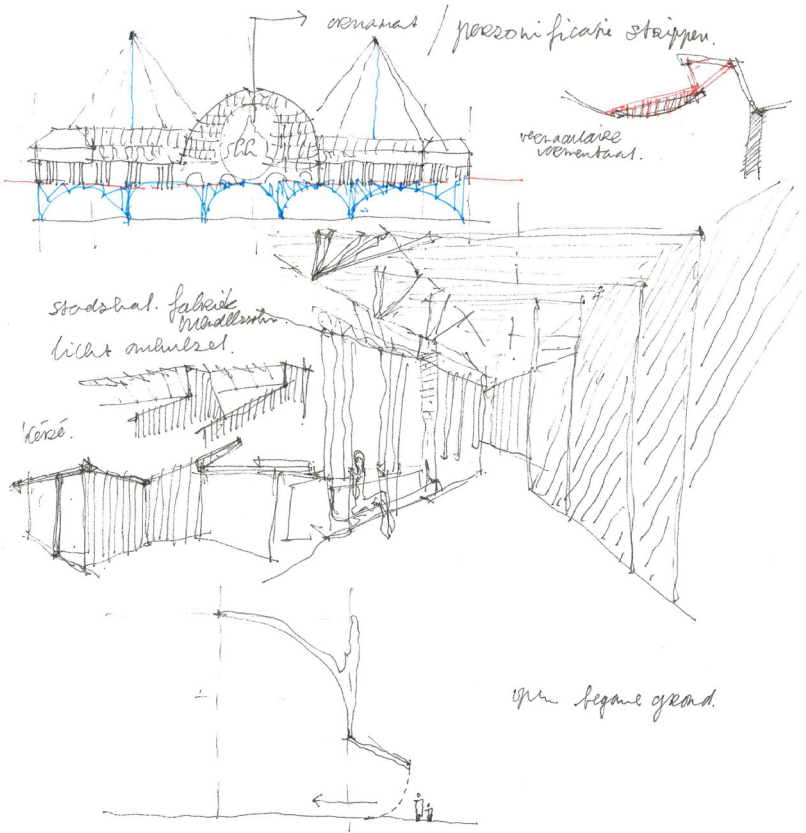 ornament / personificatie strippen.
vernaculaire
vormentaal.
stadshal. fabriek
Mendelssohn.
licht omhulzel.
Kéré.
open begane grond.